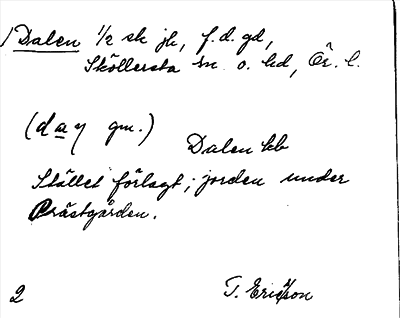 Dalen 1/2 sk jk, f.d. gd,
Sköllersta sn. o. hd, Ör. l.
(day gm.)
Dalen kb
Stället förlagt; jorden under
Prästgården.
2
T. Ericsson